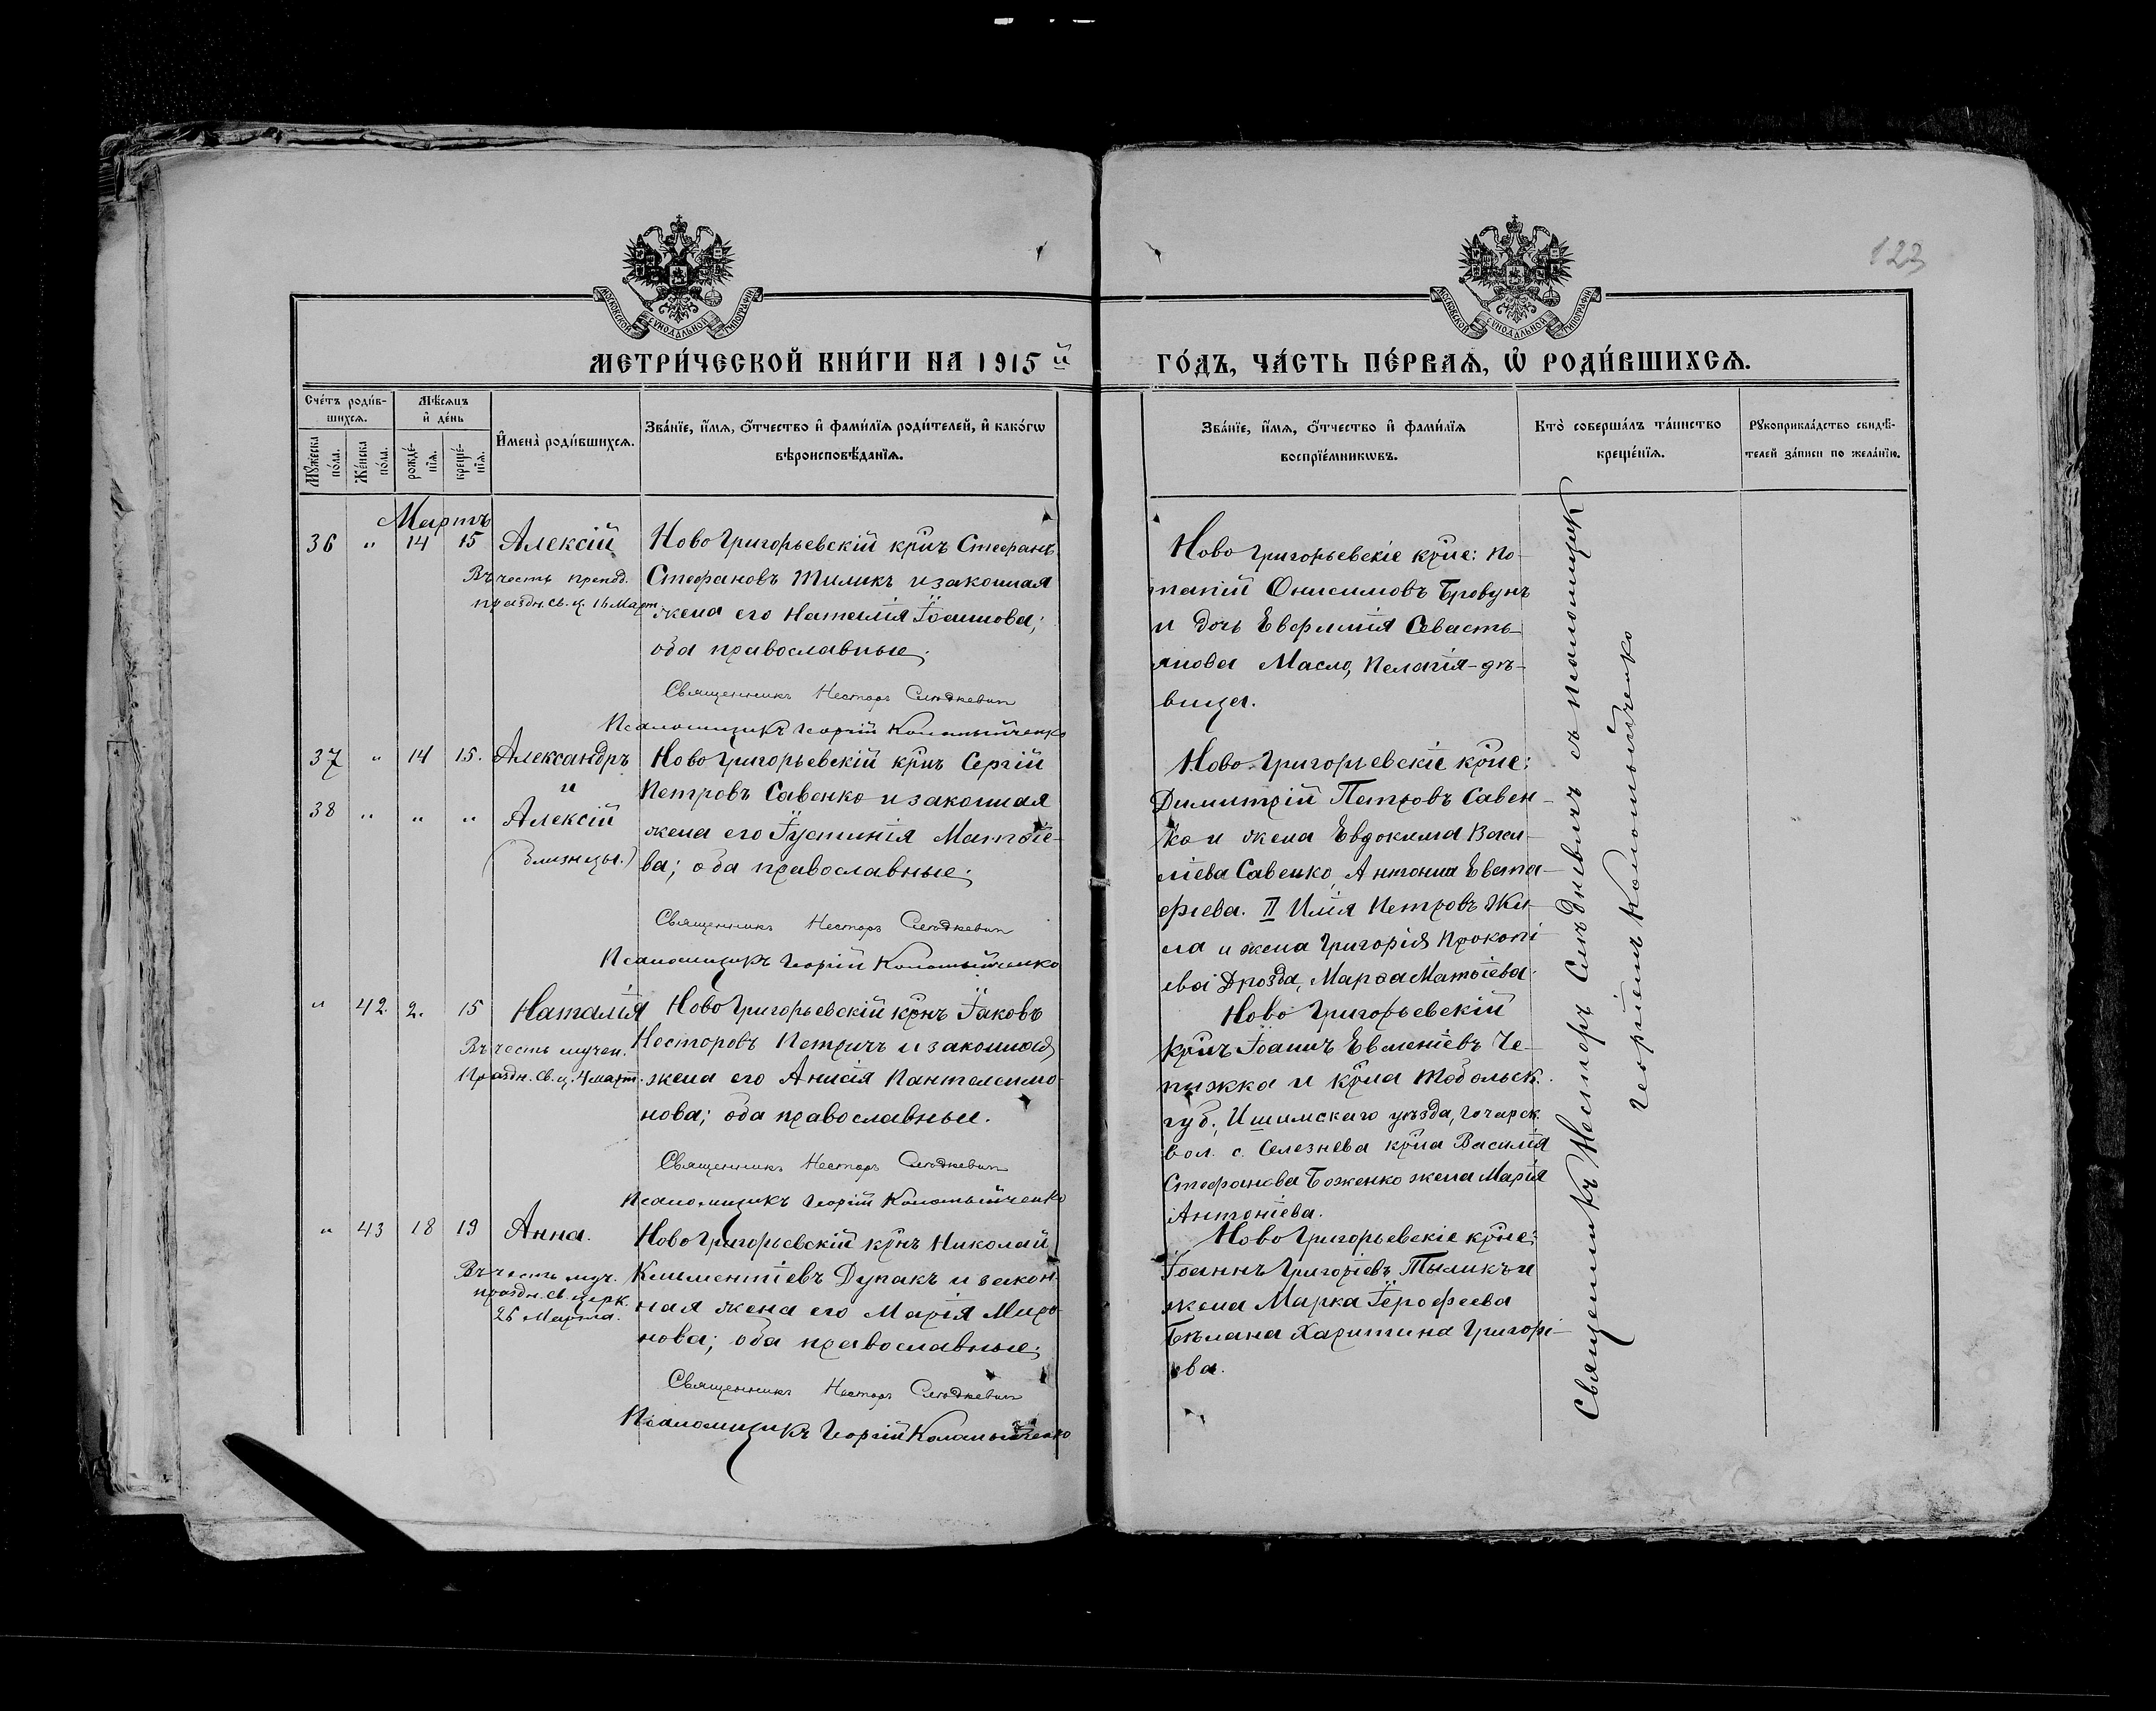 123
МОСКОВСКОЙ СУНОДАЛЬНОЙ ТИПОГРАФИИ
МОСКОВСКОЙ СУНОДАЛЬНОЙ ТИПОГРАФИИ
МЕТРИ́ЧЕСКОЙ КНИ́ГИ НА 1915 й
ГО́ДЪ, ЧА́СТЬ ПЕ́РВАѦ, Ѡ҆ РОДИ́ВШИХСѦ.
Сче́тъ роди́в-
шихсѧ.
Мѣ́сѧцъ
и҆ де́нь
Мꙋ́жеска
по́ла.
Же́нска
по́ла.
рожде́-
нїѧ.
креще́-
нїѧ.
И҆мена̀ роди́вшихсѧ.
Зва́нїе, и҆́мѧ, ѻ҆́тчество и҆ фами́лїѧ роди́телей, и҆ како́гѡ
вѣроисповѣ́данїѧ.
Зва́нїе, и҆́мѧ, ѻ҆́тчество и҆ фами́лїѧ
воспрїе́мникѡвъ.
Кто̀ соверша́лъ та́инство
креще́нїѧ.
Рꙋкоприкла́дство свидѣ́-
телей за́писи по жела́нїю.
Мартъ
36 " 14 15 Алексій
Въ честь препод.
праздн. св. ц. 16 Март.
Ново Григорьевскій крнъ Стефанъ
Стефановъ Тиликъ и законная
жена его Наталія Іоаннова;
оба православные;
Священникъ Несторъ Слюдкевич
Псаломщикъ Георгій Коломыйченко
Ново Григорьевскіе крне: По-
тапій Онисимовъ Бровунъ
и дочь Евфимія Севасть-
янова Масло, Пелагія-дѣ-
вица.
37 " 14 15. Александръ
и
38 " " " Алексій
(близнецы.)
Ново Григорьевскій крнъ Сергій
Петровъ Савенко и законная
жена его Іустинія Матѳіе-
ва; оба православные;
Священникъ Несторъ Слюдкевич
Псаломщикъ Георгій Коломыйченко
Ново Григорьевскіе крне:
Димитрій Петровъ Савен-
ко и жена Евдокима Васи-
ліева Савенко, Антонина Евста-
фіева. II Илія Петровъ Жи-
ла и жена Григорія Прокопі-
ева Дрозда, Марѳа Матѳіева.
" 42. 2. 15 Наталія
Въ честь мучен.
Праздн. св. ц. 4 март.
Ново Григорьевскій крнъ Іаковъ
Несторовъ Петричъ и законная
жена его Анисія Пантелеимо-
нова; оба православные.
Священникъ Несторъ Слюдкевич
Псаломщикъ Георгій Коломыйченко
Ново Григорьевскій
крнъ Іоаннъ Евменіевъ Че-
пижка и крна Тобольск.
губ., Ишимскаго уѣзда, Гочарск.
вол. с. Селезнева крна Василія
Стефанова Боженко жена Марія
Антоніева.
" 43 18 19 Анна.
Въ честь муч.
праздн. св. церк.
26 Марта.
Ново Григорьевскій крнъ Николай
Климентіевъ Дупакъ и закон-
ная жена его Марія Миро-
нова; оба православные;
Священникъ Несторъ Слюдкевич
Псаломщикъ Георгій Коломыйченко
Ново Григорьевскіе крне:
Іоаннъ Григоріевъ Тыликъ и
жена Марка Іерофеева
Бѣлана Харитина Григорі-
ева.
Священникъ Несторъ с псаломщик
Георгіемъ Коломыйченко